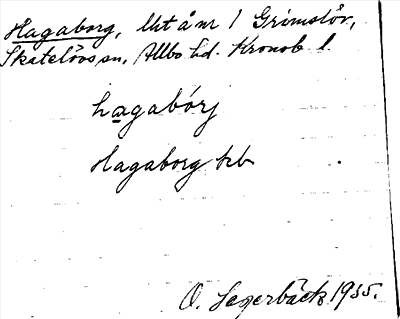 Hagaborg, lht å nr 1 Grimslöv,
Skatelövs sn, Allbo hd. Kronob. l.
hagabórj
Hagaborg
O. Segerbäck 1935.